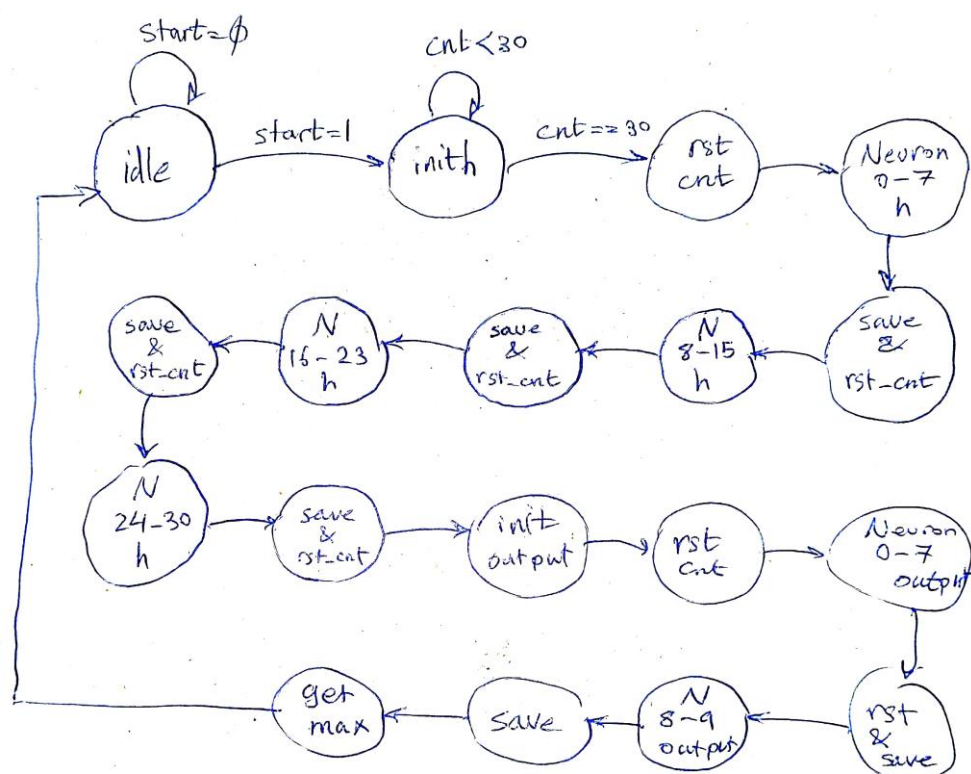 start=ϕ
cnt<30
idle
start=1
inith
cnt==30
rst
cnt
Neuron
0-7
h
save
&
rst_cnt
N
8-15
h
save
&
rst_cnt
N
16-23
h
save
&
rst_cnt
N
24-30
h
save
&
rst_cnt
init
output
rst
cnt
Neuron
0-7
output
rst
&
save
N
8-9
output
save
get
max